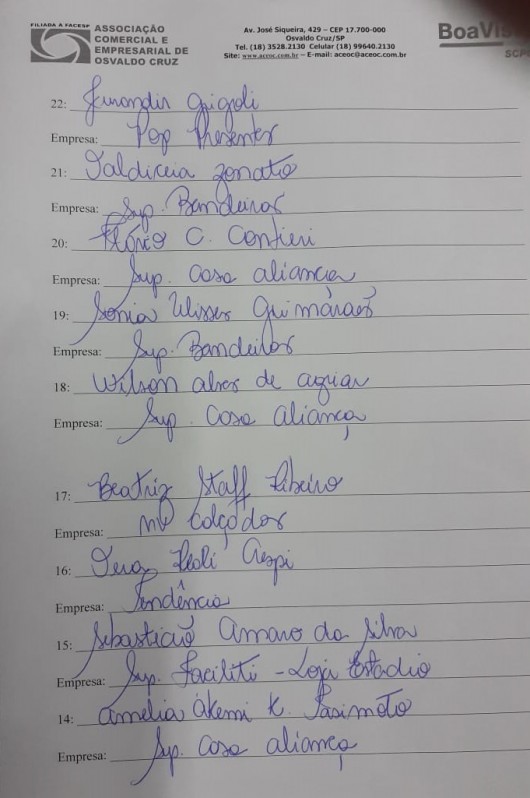 FILIADA À FACESP
ASSOCIAÇÃO
COMERCIAL E
EMPRESARIAL DE
OSVALDO CRUZ
Av. José Siqueira, 429 – CEP 17.700-000
Osvaldo Cruz/SP
Tel. (18) 3528.2130 Celular (18) 99640.2130
Site: www.aceoc.com.br – E-mail: aceoc@aceoc.com.br
BoaVis
SCP
22: Jurandir Grigoli
Empresa: Pop Presentes
21: Valdiceia Zonato
Empresa: Sup. Bandeiras
20: Flório C. Contieri
Empresa: Sup. Casa aliança
19: Sonia Ulisses Guimarães
Empresa: Sup. Bandeiras
18: Wilson alves de aguiar
Empresa: Sup. Casa aliança
17: Beatriz Staff Ribeiro
Empresa: Calçados
16: Crespi
Empresa: Tendência
15: Sebastião Amaro da Silva
Empresa: Sup. Faciliti - Loja Estadio
14: Amelia Akemi K.
Empresa: Sup. Casa aliança